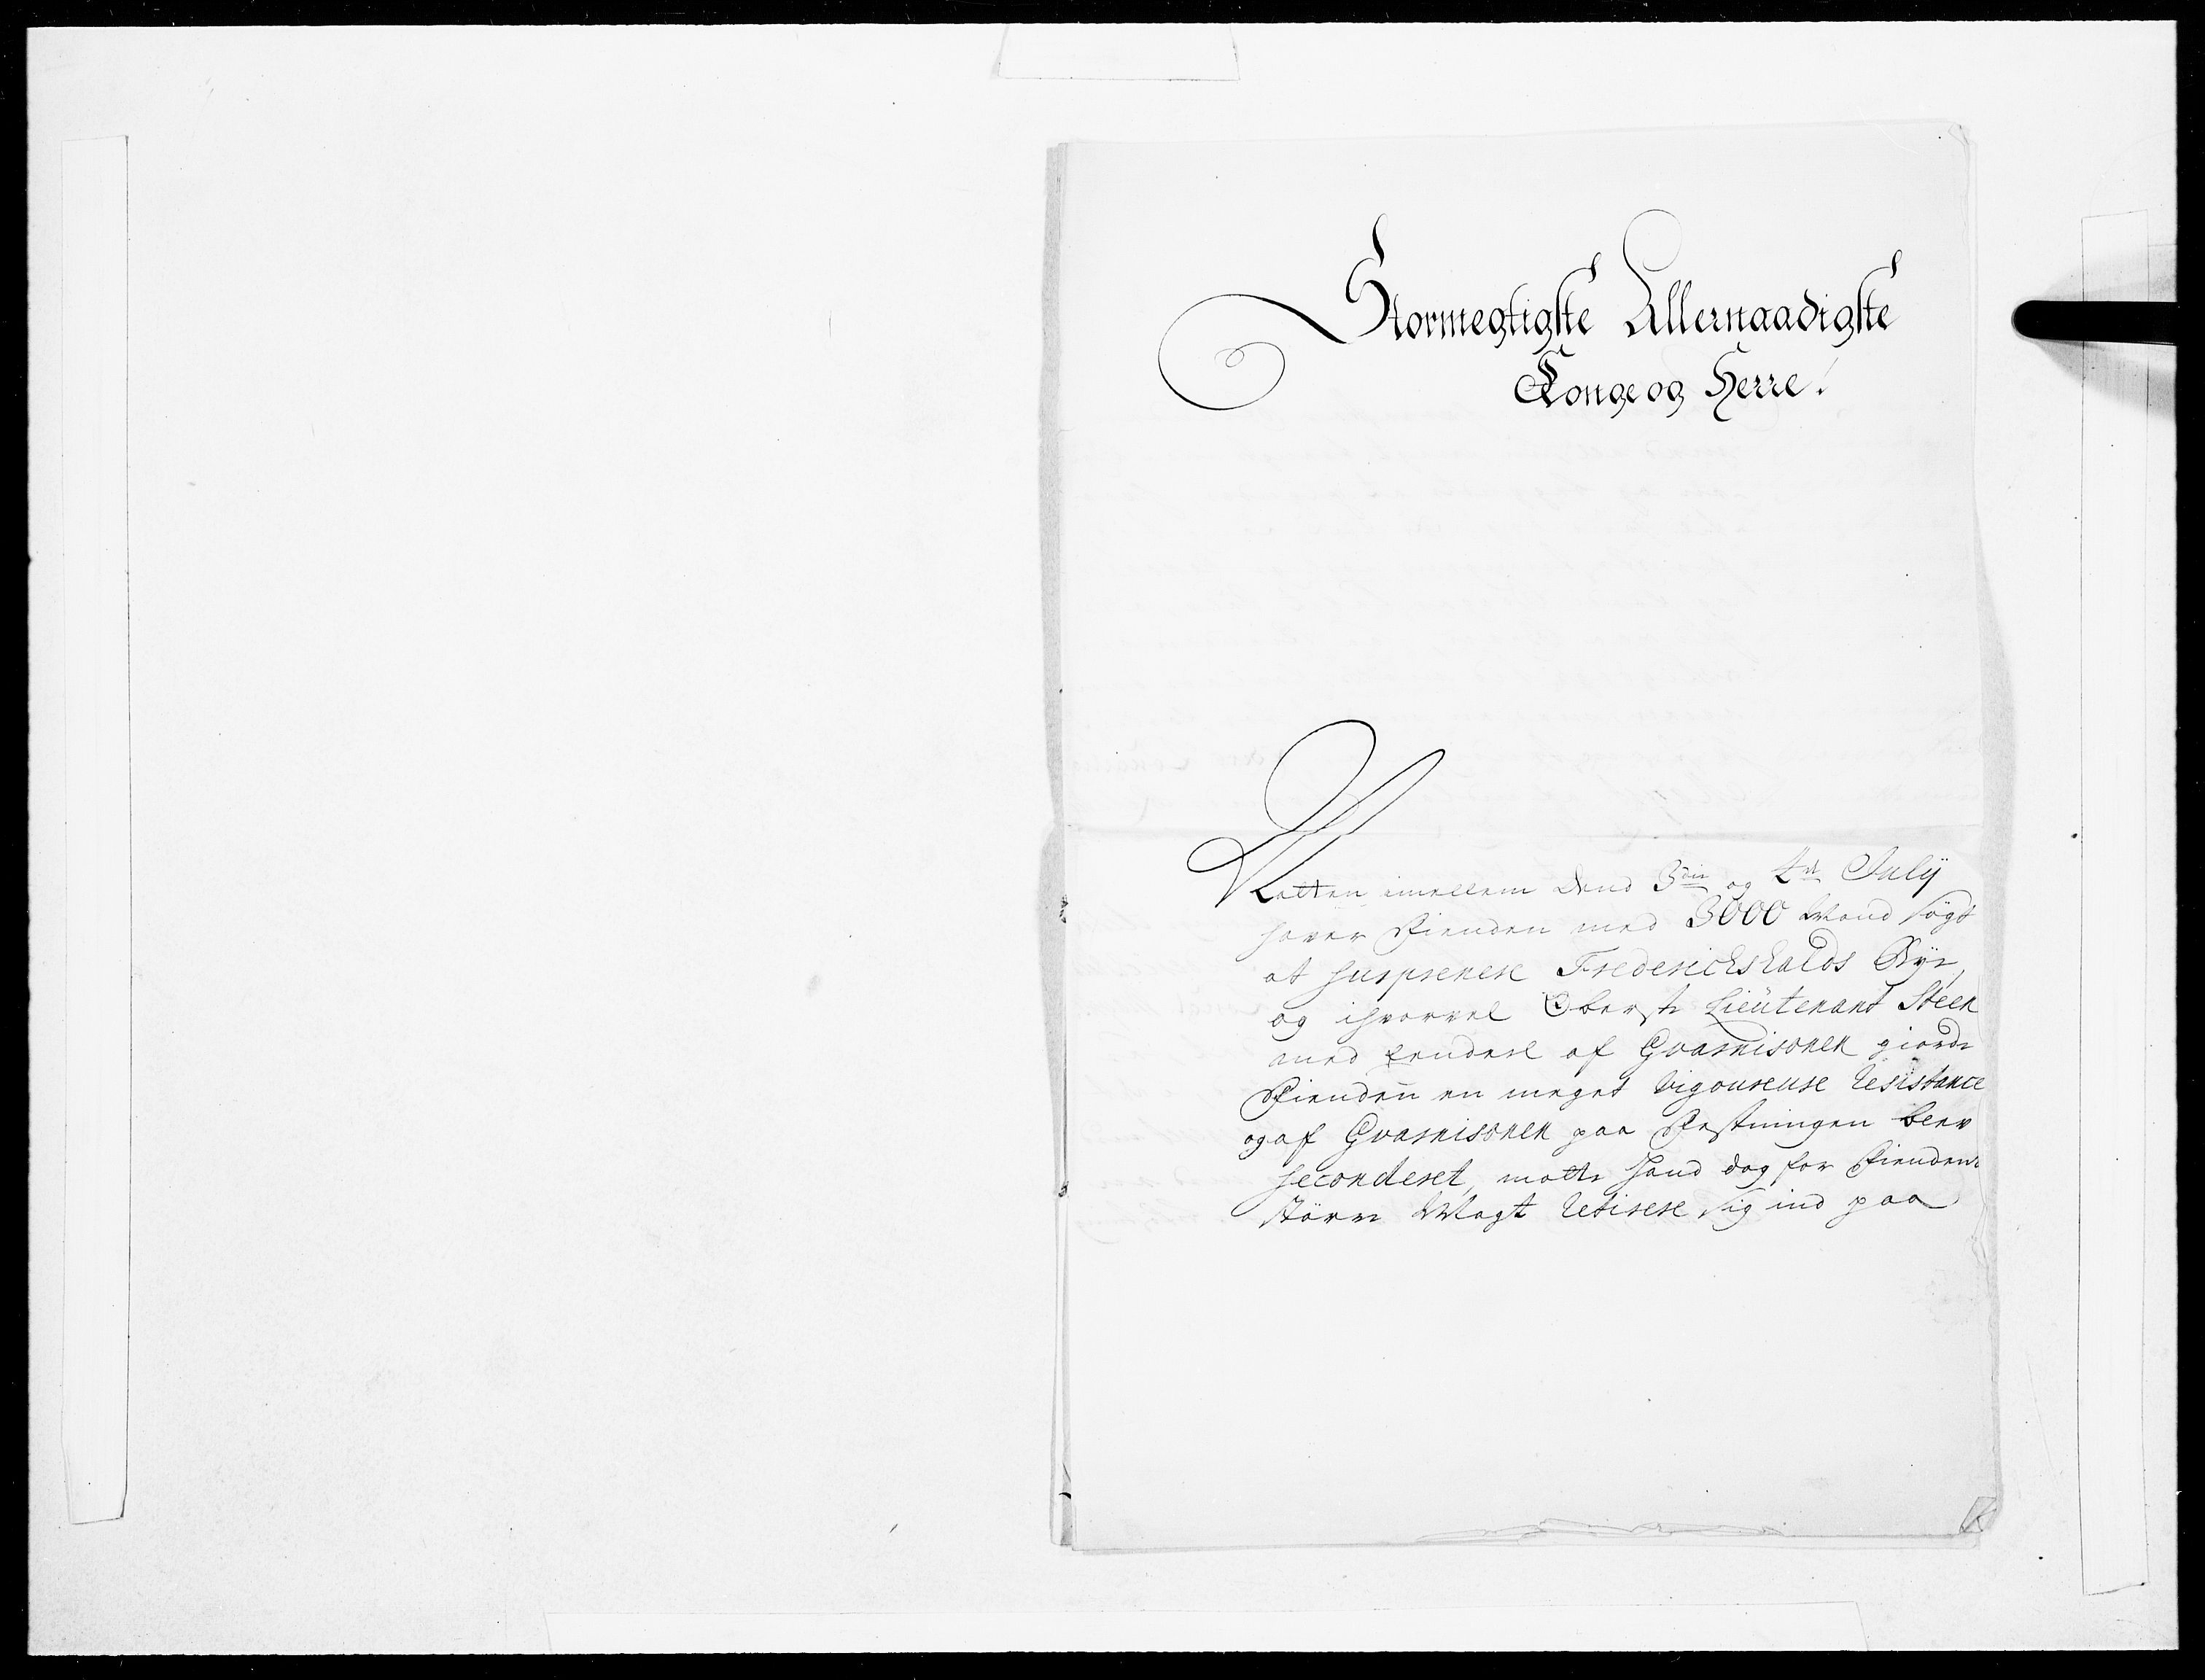 Stormegtigste Allernaadigste
Konge og Herre!
Natten imellem dend 3die og 4de July
haver Fienden med 3000 Mand søgt
at surprenere Friderichshalds Bye,
og ihvorvel Oberst Lieutenant Steen
med endeel af Gvarnisonen giorde
Fienden en meget vigoureuse resistance
og af Gvarnisonen paa Festningen blev
seconderet, motte hand dog for Fiendens
større Magt retirere sig ind paa